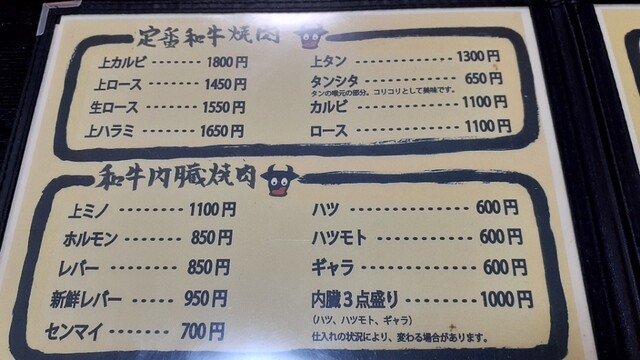 定番和牛焼肉
上カルビ ・・・・・・ 1800円
上ロース ・・・・・・ 1450円
生ロース ・・・・・・ 1550円
上ハラミ ・・・・・・ 1650円
上タン ・・・・・・・・・・・・ 1300円
タンシタ ・・・・・・・・・・・・ 650円
タンの喉元の部分。コリコリとして美味です。
カルビ ・・・・・・・・・・・・ 1100円
ロース ・・・・・・・・・・・・ 1100円
和牛内臓焼肉
上ミノ ・・・・・・・・ 1100円
ホルモン ・・・・・・・ 850円
レバー ・・・・・・・・ 850円
新鮮レバー ・・・・・ 950円
センマイ ・・・・・・・ 700円
ハツ ・・・・・・・・・・・・ 600円
ハツモト ・・・・・・・・・ 600円
ギャラ ・・・・・・・・・・ 600円
内臓３点盛り ・・・・・・・・・ 1000円
（ハツ、ハツモト、ギャラ）
仕入れの状況により、変わる場合があります。